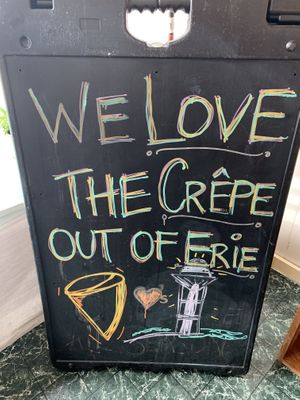 WE LOVE
THE CRÊPE
OUT OF ERIE